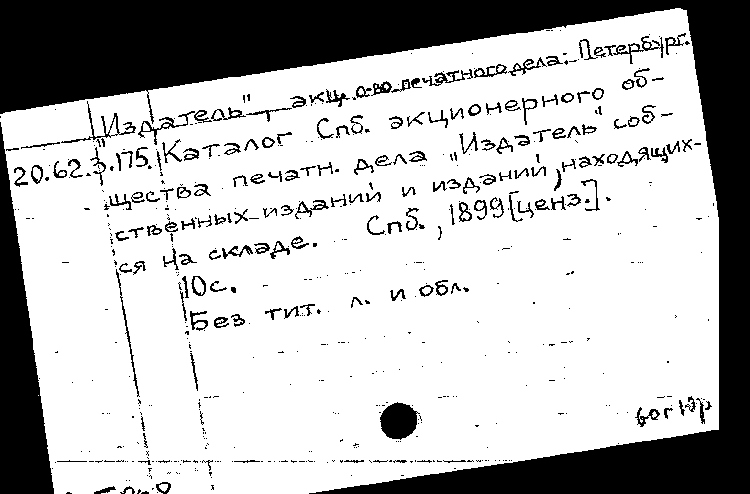 "Издатель", акц. о-во печатного дела; Петербург.
20.62.3.175. Каталог Спб. акционерного об-
щества печатн. дела "Издатель" соб-
ственных изданий и изданий, находящих-
ся на складе. Спб., 1899 [ценз.].
10с.
Без тит. л. и обл.